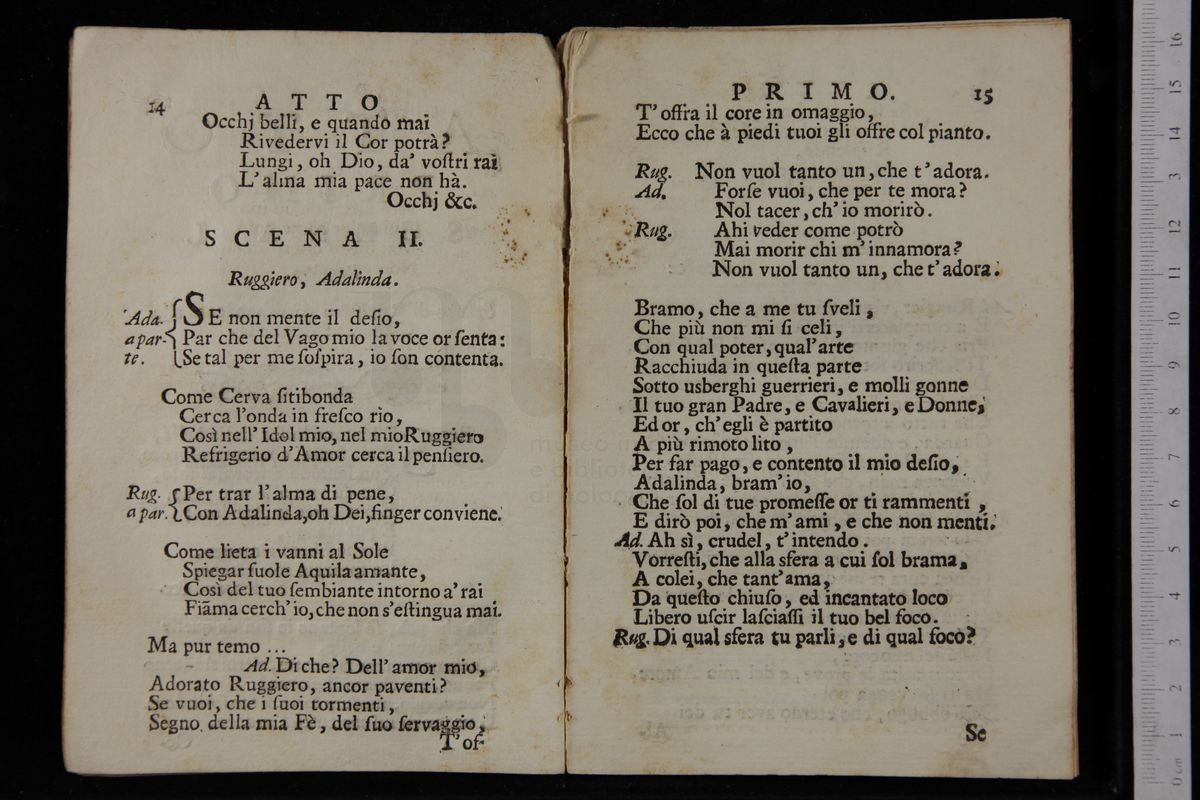 14 ATTO
Occhj belli, e quando mai
Rivedervi il Cor potrà?
Lungi, oh Dio, da' voſtri rai
L'alma mia pace non hà.
Occhj &c.
SCENA II.
Ruggiero, Adalinda.
Ada. SE non mente il deſio,
a par- Par che del Vago mio la voce or ſenta:
te. Se tal per me ſoſpira, io ſon contenta.
Come Cerva ſitibonda
Cerca l'onda in freſco rio,
Così nell' Idol mio, nel mio Ruggiero
Refrigerio d'Amor cerca il penſiero.
Rug. Per trar l'alma di pene,
a par. Con Adalinda, oh Dei, finger conviene.
Come lieta i vanni al Sole
Spiegar ſuole Aquila amante,
Così del tuo ſembiante intorno a' rai
Fiãma cerch' io, che non s'eſtingua mai.
Ma pur temo ...
Ad. Di che? Dell' amor mio,
Adorato Ruggiero, ancor paventi?
Se vuoi, che i ſuoi tormenti,
Segno della mia Fè, del ſuo ſervaggio,
T'of-
PRIMO. 15
T'offra il core in omaggio,
Ecco che à piedi tuoi gli offre col pianto.
Rug. Non vuol tanto un, che t'adora.
Ad. Forſe vuoi, che per te mora?
Nol tacer, ch'io morirò.
Rug. Ahi veder come potrò
Mai morir chi m'innamora?
Non vuol tanto un, che t'adora.
Bramo, che a me tu ſveli,
Che più non mi ſi celi,
Con qual poter, qual'arte
Racchiuda in queſta parte
Sotto usberghi guerrieri, e molli gonne
Il tuo gran Padre, e Cavalieri, e Donne;
Ed or, ch'egli è partito
A più rimoto lito,
Per far pago, e contento il mio deſio,
Adalinda, bram'io,
Che ſol di tue promeſſe or ti rammenti,
E dirò poi, che m'ami, e che non menti.
Ad. Ah sì, crudel, t'intendo.
Vorreſti, che alla sfera a cui ſol brama,
A colei, che tant'ama,
Da queſto chiuſo, ed incantato loco
Libero uſcir laſciaſſi il tuo bel foco.
Rug. Di qual sfera tu parli, e di qual foco?
Se